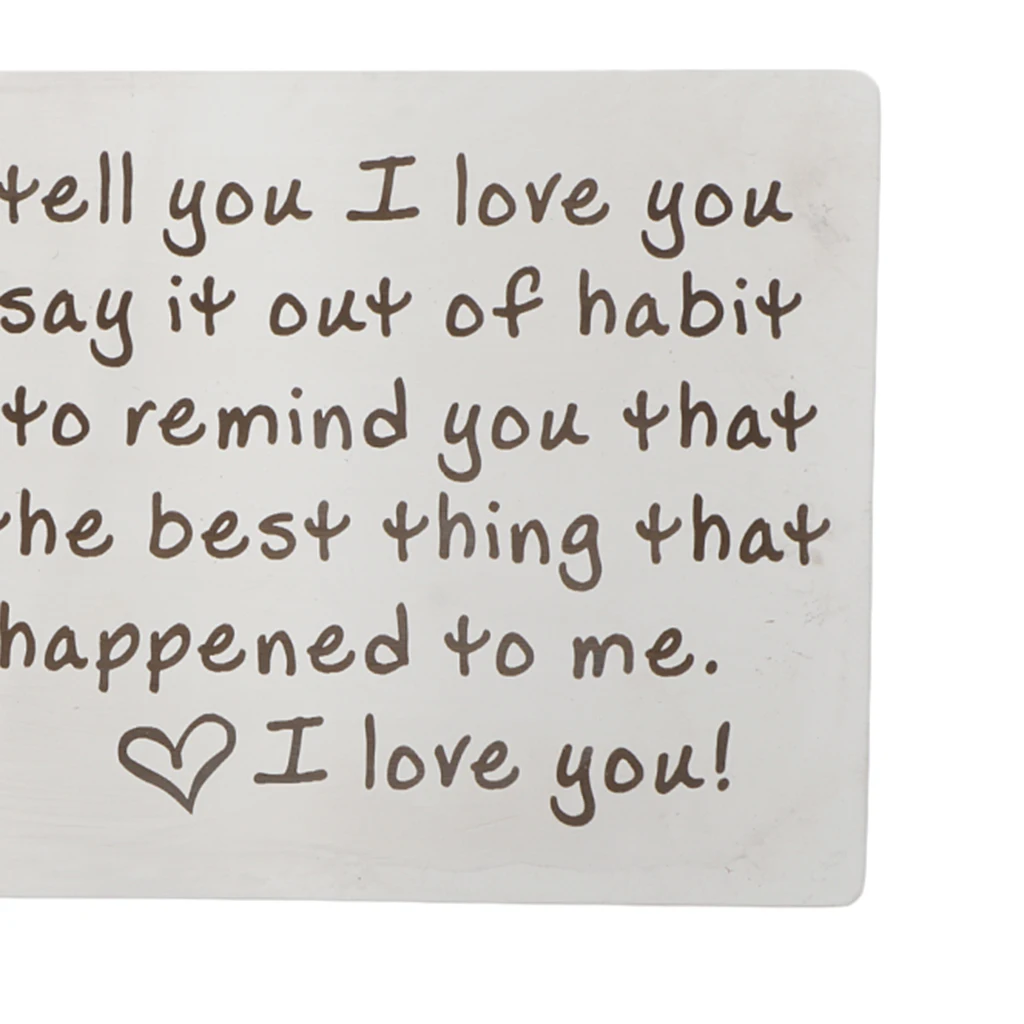 tell you I love you
say it out of habit
to remind you that
the best thing that
happened to me.
♡ I love you!